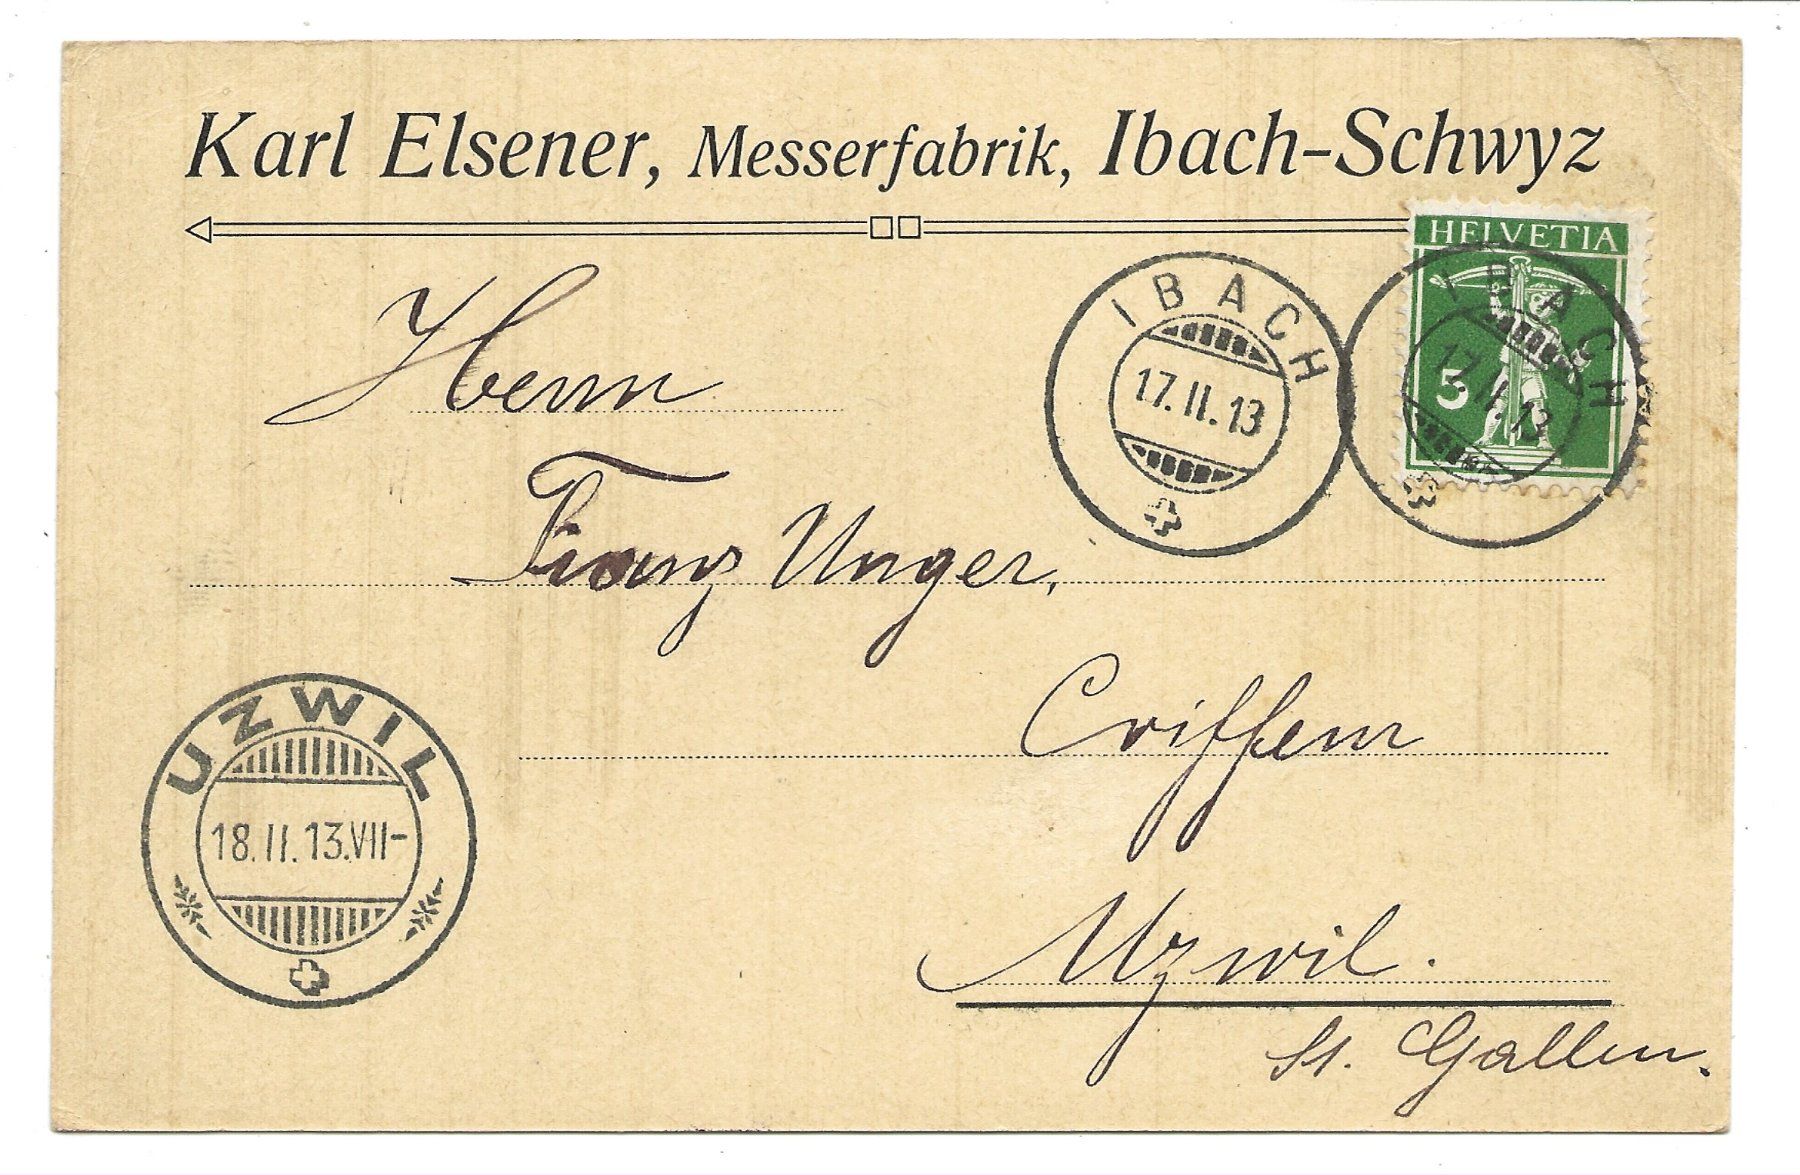 Karl Elsener, Messerfabrik, Ibach-Schwyz
HELVETIA
5
IBACH
17.II.13
IBACH
17.II.13
Herrn
Franz Unger,
Coiffeur
UZWIL
18.II.13.VII-
Uzwil.
St. Gallen.